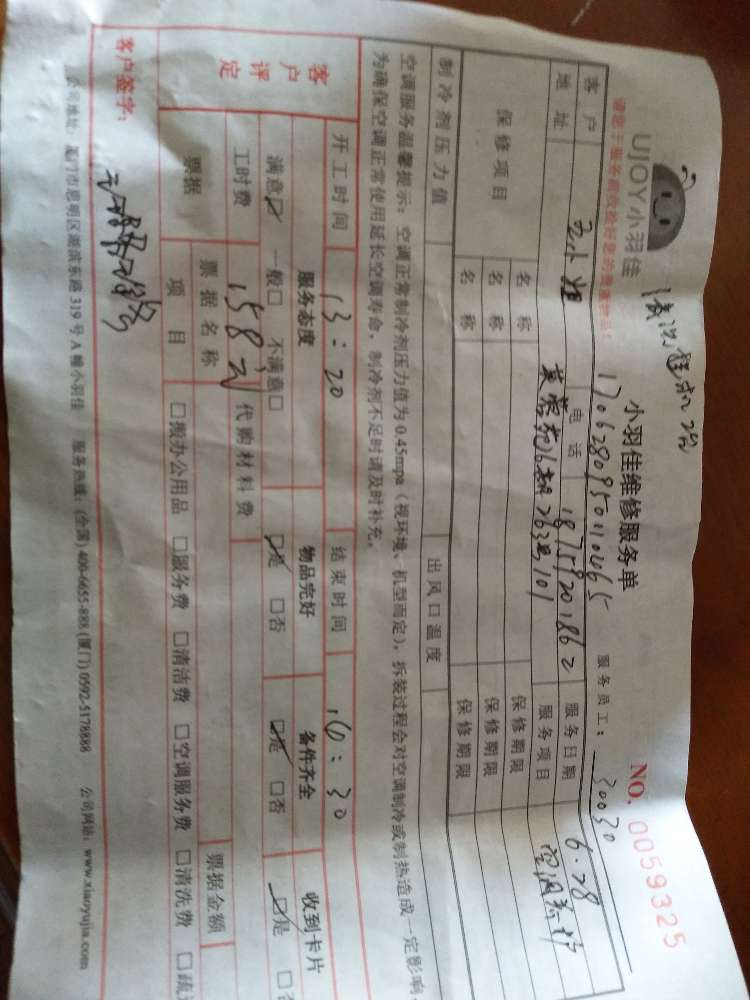 UJOY小羽佳
小羽佳维修服务单
NO. 0059325
请您于服务后收给好您的
17062809501102065
服务员工： 30030
客户
王小姐
电话
18759201862
服务日期
6.28
地址
26号101
服务项目
空调
保修项目
名称
保修期限
名称
保修期限
名称
保修期限
制冷剂压力值
出风口温度
空调服务温馨提示：空调正常制冷剂压力值为0.45mpa（视环境、机型而定），拆装过程会对空调制冷或制热造成一定影响，
为确保空调正常使用延长空调寿命，制冷剂不足时请及时补充。
开工时间
13：20
结束时间
16：30
客户评定
服务态度
物品完好
备件齐全
收到卡片
满意☑ 一般□ 不满意□
☑是 □否
☑是 □否
☑是 □否
工时费
158元
代购材料费
票据
票据名称
票据金额
项目
□搬办公用品 □服务费 □清洁费 □空调服务费 □清洗费 □疏
客户签字：
公司地址：厦门市思明区湖滨东路319号A幢小羽佳 服务热线：(全国) 400-6655-888 (厦门) 0592-5178888 公司网站：www.xiaoyujia.com